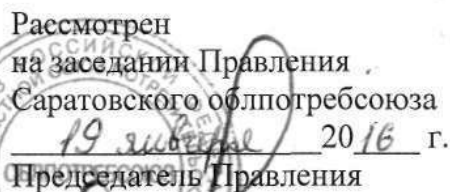 Рассмотрен
на заседании Правления
Саратовского облпотребсоюза
19 января 2016 г.
Председатель Правления